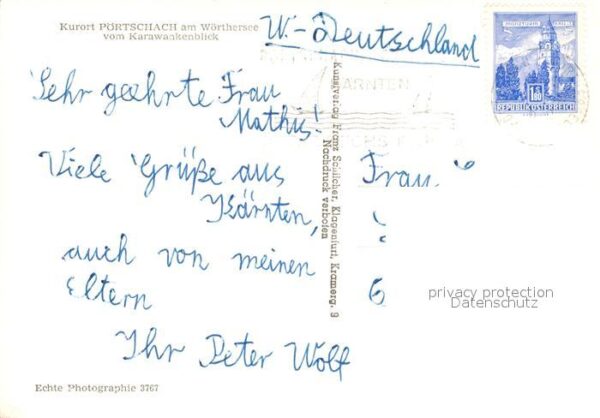 Kurort PÖRTSCHACH am Wörthersee
vom Karawankenblick
W.-Deutschland
KÄRNTEN
1.80
REPUBLIK ÖSTERREICH
Sehr geehrte Frau
Mathis!
Viele Grüße aus
Kärnten,
auch von meinen
Eltern
Ihr Peter Wolf
Kunstverlag Franz Schilcher, Klagenfurt, Kramerg. 9
Nachdruck verboten
Frau
6
privacy protection
Datenschutz
Echte Photographie 3767